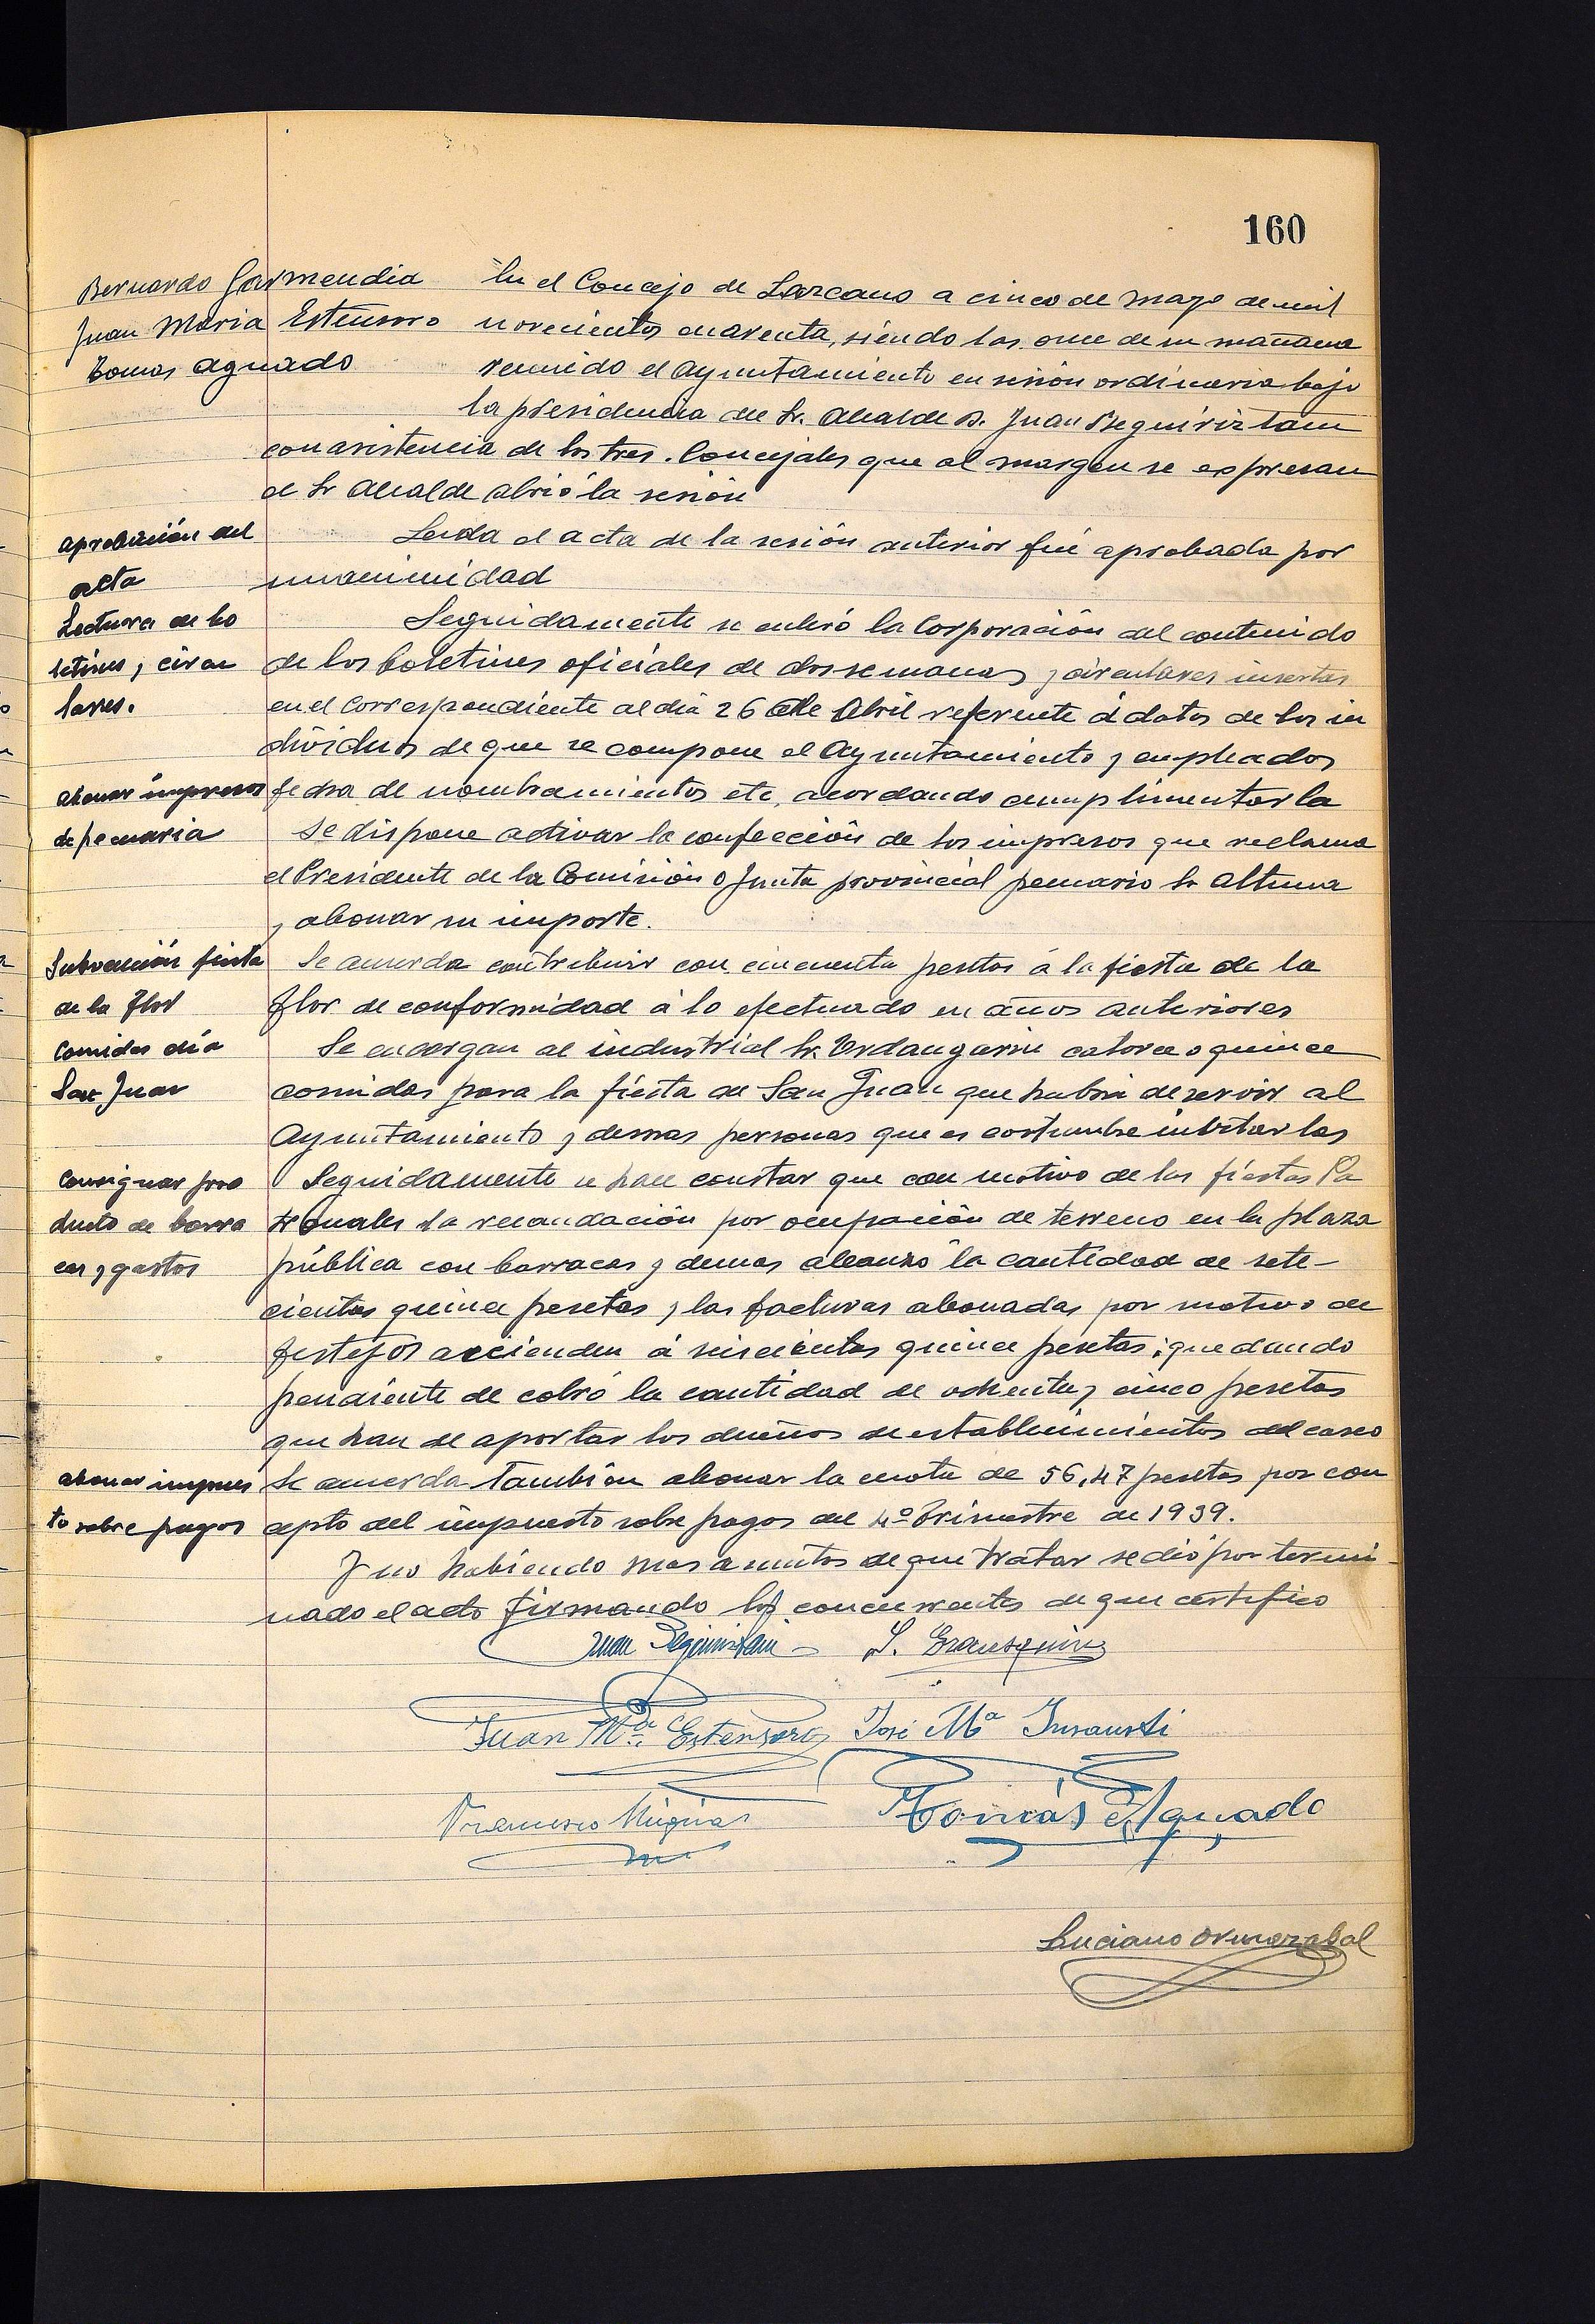 160
Bernardo Garmendia
Juan Maria Estensoro
Tomas Aguado
En el Concejo de Lazcano a cinco de Mayo de mil
novecientos cuarenta, siendo las once de su mañana
reunido el Ayuntamiento en sesión ordinaria bajo
la presidencia del Sr. Alcalde D. Juan Beguiriztain
con asistencia de los tres Concejales que al margen se expresan
el Sr Alcalde abrió la sesión
aprobación del
acta
Leida el acta de la sesión anterior fué aprobada por
unanimidad
Lectura de bo
letines, circu
lares.
Seguidamente se enteró la Corporación del contenido
de los boletines oficiales de dos semanas y circulares insertas
en el correspondiente al día 26 de Abril referente á datos de los in
dividuos de que se compone el Ayuntamiento y empleados
fecha de nombramientos etc, acordando cumplimentarla
abonar impresos
de pecuaria
Se dispone activar la confección de los impresos que reclama
el Presidente de la Comisión o Junta provincial pecuario Sr Altuna
y abonar su importe.
Subvención fiesta
de la Flor
Se acuerda contribuir con cincuenta pesetas á la fiesta de la
Flor de conformidad á lo efectuado en años anteriores
Comidas día
San Juan
Se encargan al industrial Sr. Urdangarin catorce o quince
comidas para la fiesta de San Juan que habrá de servir al
Ayuntamiento y demas personas que es costumbre invitarlas
Consignar pro
ducto de barra
cas y gastos
Seguidamente se hace constar que con motivo de las fiestas Pa
tronales la recaudación por ocupación de terreno en la plaza
pública con barracas y demas alcanzó la cantidad de sete-
cientas quince pesetas y las facturas abonadas por motivo de
festejos accienden á seiscientas quince pesetas; quedando
pendiente de cobró la cantidad de ochenta y cinco pesetas
que han de aportar los dueños de establecimientos del casco
abonar impues
to sobre pagos
Se acuerda también abonar la cuota de 56,47 pesetas por con
cepto del impuesto sobre pagos del 4º Trimestre de 1939.
Y no habiendo mas asuntos de que tratar se dió por termi-
nado el acto firmando los concurrentes de que certifico
Juan Beguiristain S. Erausquin
Juan Mª Estensoro José Mª Insausti
Francisco Múgica Tomás Aguado
Luciano Ormazabal